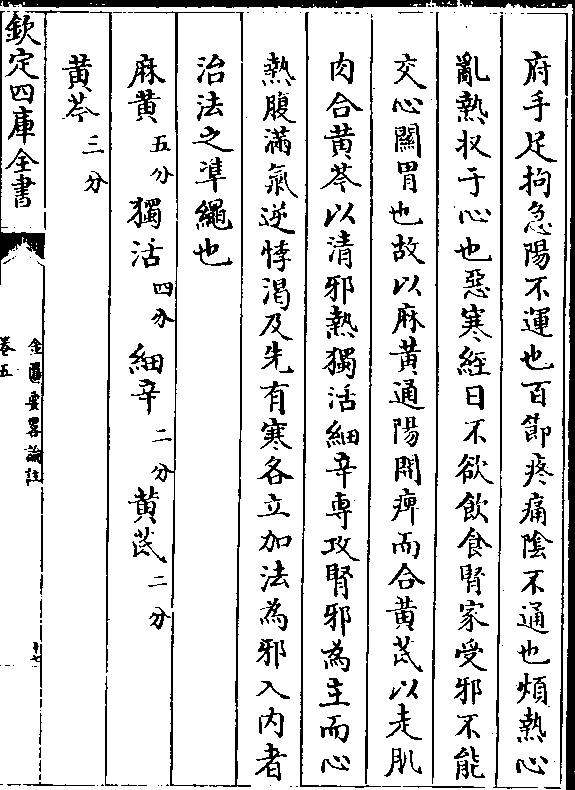 府手足拘急陽不運也百節疼痛陰不通也煩熱心
亂熱收于心也惡寒經日不欲飲食腎家受邪不能
交心關胃也故以麻黄通陽開痺而合黄芪以走肌
肉合黄芩以清邪熱獨活細辛專攻腎邪為主而心
熱腹滿氣逆悸渴及先有寒各立加法為邪入内者
治法之凖繩也
麻黄五分 獨活四分 細辛二分 黄芪二分
黄芩三分
欽定四庫全書
金匱要畧論註
卷五
十七